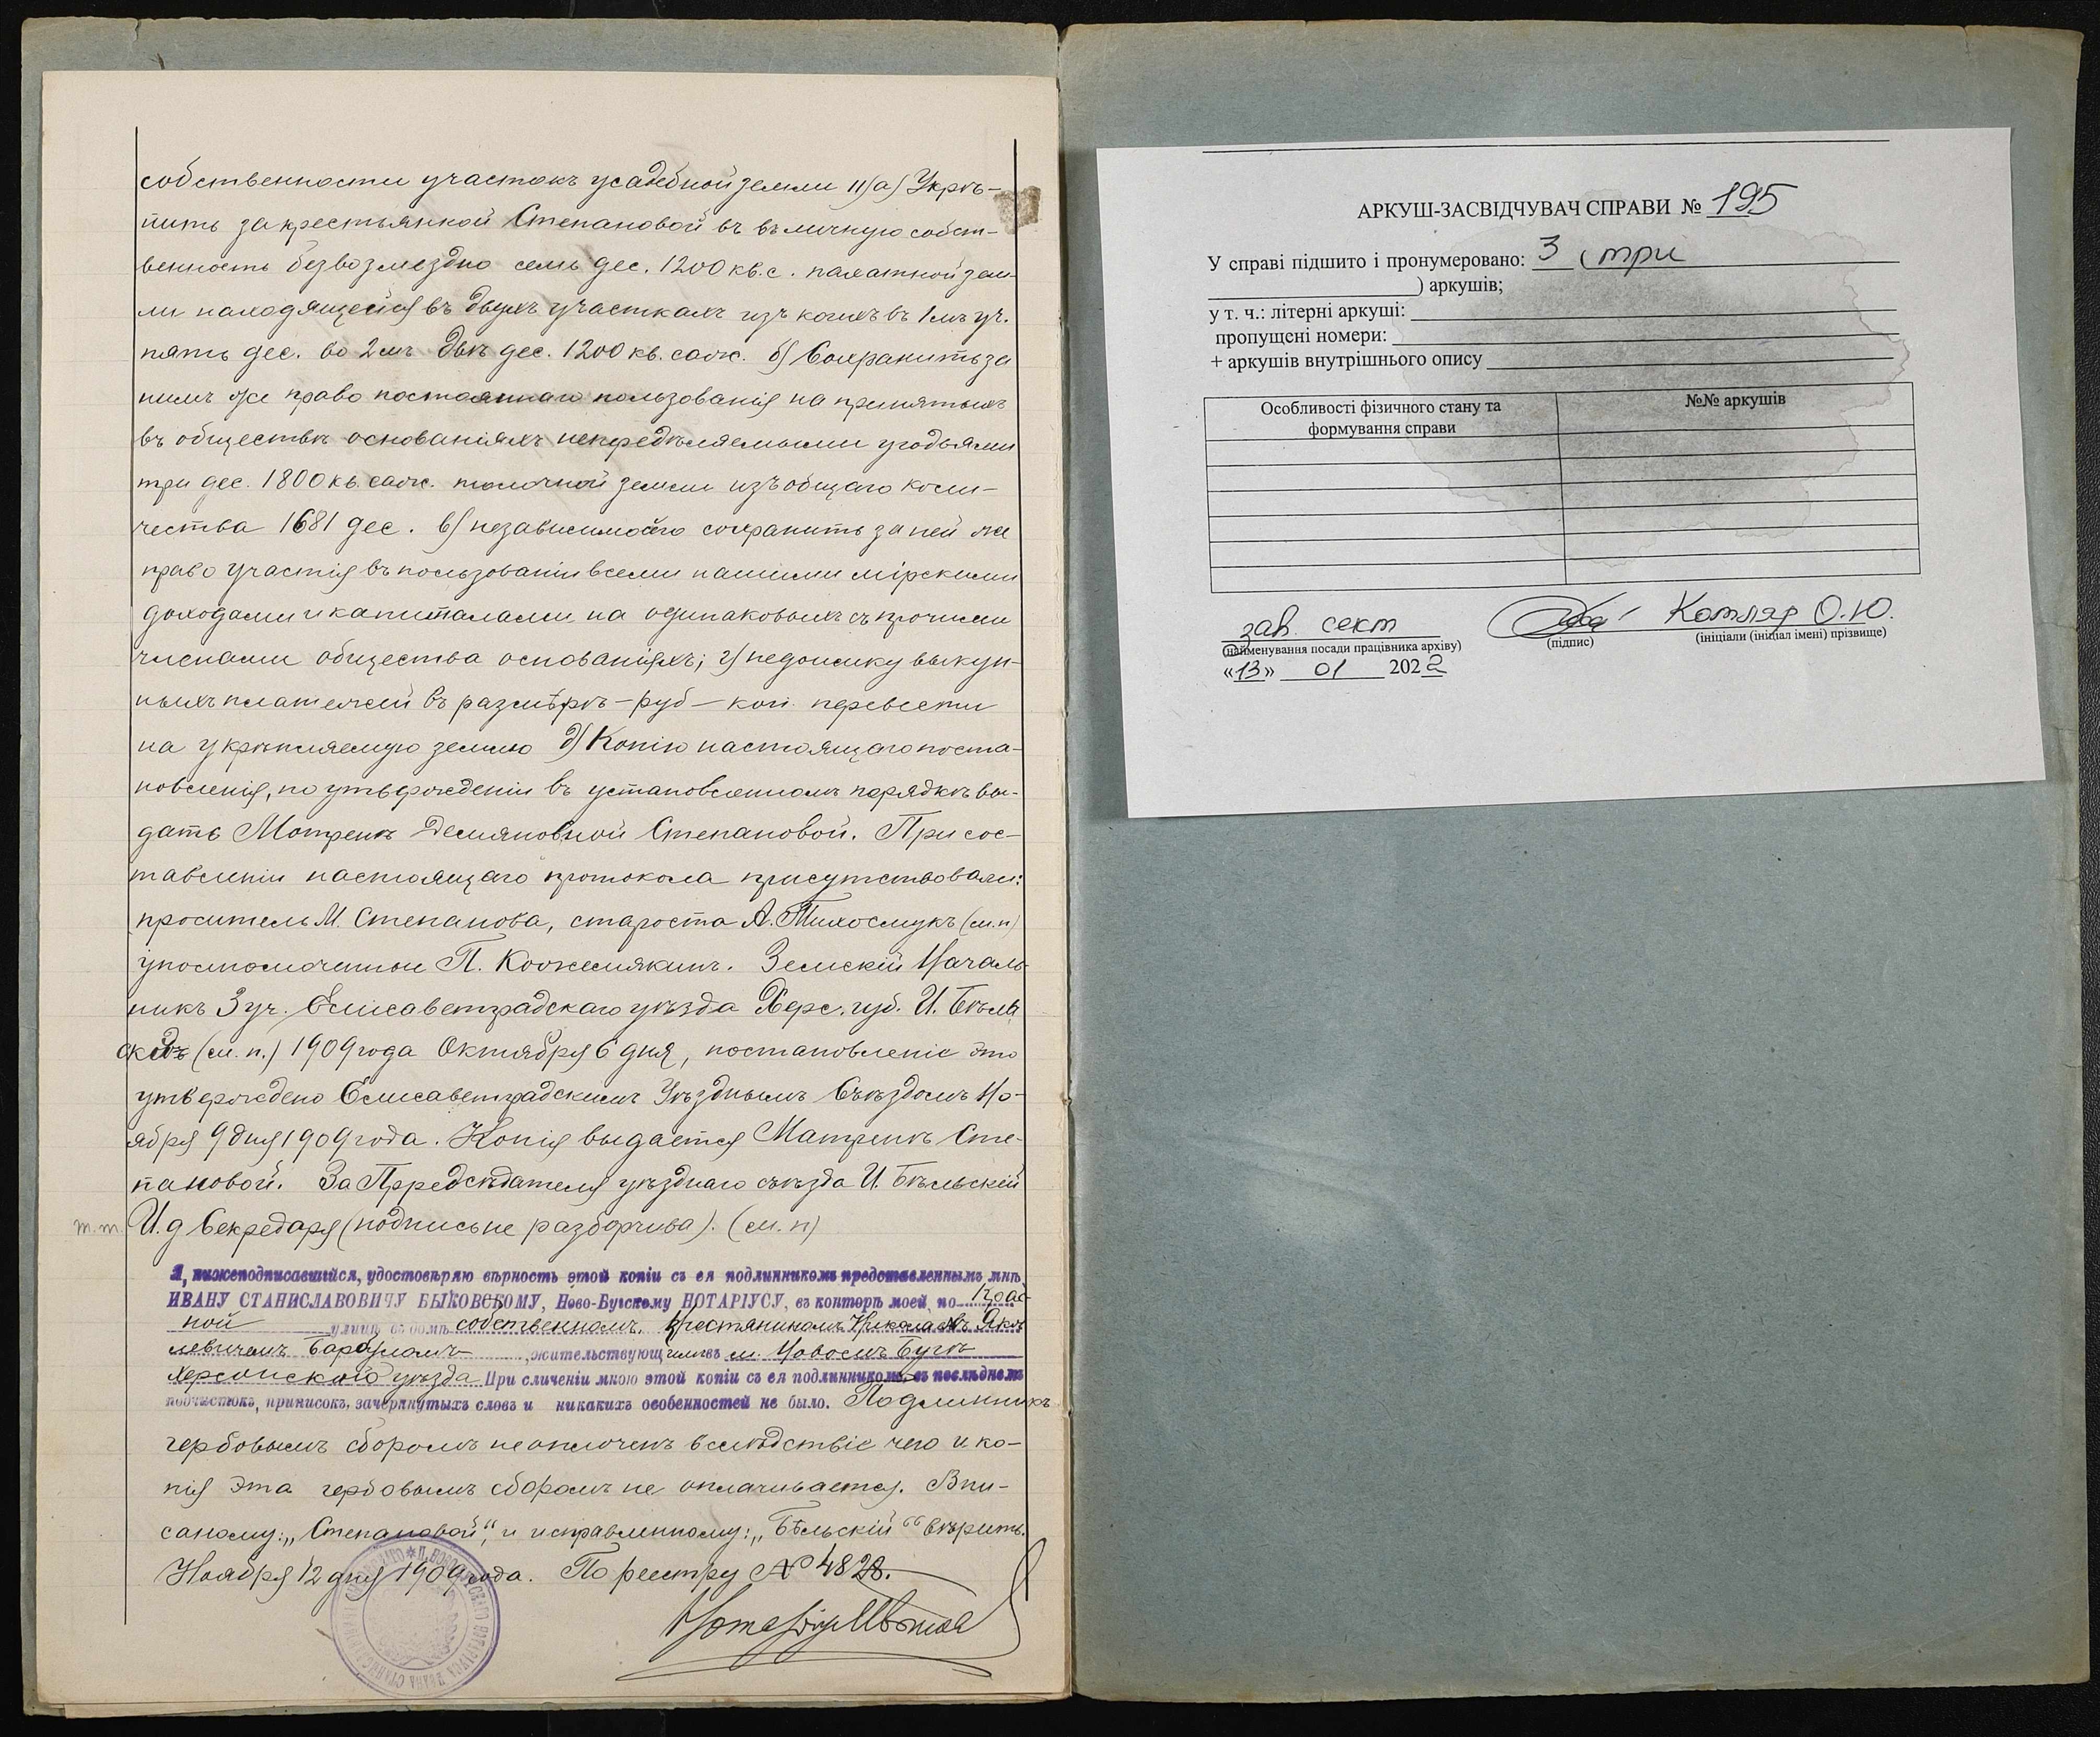 собственности участокъ усадебной земли 11) а) Укрѣ-
пить за крестьянкой Степановой въ въ личную собст-
венность безвозмездно семь дес. 1200 кв. с. пахатной зем-
ли находящейся въ двухъ участкахъ изъ коихъ въ 1мъ уч.
пять дес. во 2мъ двѣ дес. 1200 кв. саж. б) Сохранить за
нимъ же право постояннаго пользованія на принятыхъ
въ обществѣ основаніяхъ непредѣляемыми угодьями
три дес. 1800 кв. саж. толочной земли изъ общаго коли-
чества 1681 дес. в) независимо сего сохранить за ней же
право участія въ пользованіи всеми нашими мірскими
доходами и капиталами на одинаковыхъ съ прочими
членами общества основаніяхъ; г) недоимку выкуп-
ныхъ платежей въ размѣрѣ — руб — коп. перевести
на укрѣпляемую землю д) Копію настоящаго поста-
новленія, по утвержденіи въ установленномъ порядкѣ вы-
дать Мотренѣ Демяновной Степановой. При сос-
тавленіи настоящаго протокола присутствовали:
проситель М. Степанова, староста А. Тихосмукъ (м.п)
уполномоченные П. Кожемякинъ. Земскій Началь-
никъ 3 уч. Елисаветградскаго уѣзда Херс. губ. И. Бѣль
скій (м. п.) 1909 года Октября 6 дня, постановленіе это
утверждено Елисаветградскимъ Уѣзднымъ Съѣздомъ Но-
ября 9 дня 1909 года. Копія выдается Матренѣ Сте-
пановой. За Предсѣдателя уѣзднаго съѣзда И. Бѣльскій
т.т. И. д Секредаря (подпись не разборчива). (м. п)
Я, нижеподписавшійся, удостовѣряю вѣрность этой копіи съ ея подлинникомъ представленнымъ мнѣ
ИВАНУ СТАНИСЛАВОВИЧУ БЫКОВСКОМУ, Ново-Бугскому НОТАРІУСУ, въ конторѣ моей, по
ной улицѣ въ домѣ собственномъ, крестяниномъ Николаемъ Яков
левичемъ жительствующимъ въ м. Новомъ Бугѣ
Херсонскаго уѣзда При сличеніи мною этой копіи съ ея подлинникомъ въ послѣднемъ
подчистокъ, приписокъ, зачеркнутыхъ словъ и никакихъ особенностей не было. Подлинникъ
гербовымъ сборомъ не оплоченъ вслѣдствіе чего и ко-
пія эта гербовымъ сборомъ не оплачивается. Впи-
саному: „Степановой", и исправленному: „Бѣльскій" вѣрить.
Ноября 12 дня 1909 года. По реестру № 4828.
Нотаріусъ
АРКУШ-ЗАСВІДЧУВАЧ СПРАВИ № 195
У справі підшито і пронумеровано: 3 ( три
) аркушів;
у т. ч.: літерні аркуші:
пропущені номери:
+ аркушів внутрішнього опису
Особливості фізичного стану та №№ аркушів
формування справи
зав. сект Котляр О.Ю.
(найменування посади працівника архіву) (підпис) (ініціали (ініціал імені) прізвище)
«13» 01 2022